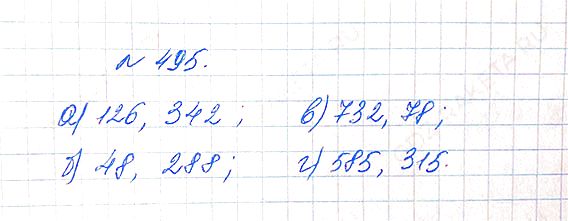 № 495.
а) 126, 342; в) 732, 78;
б) 48, 288; г) 585, 315.